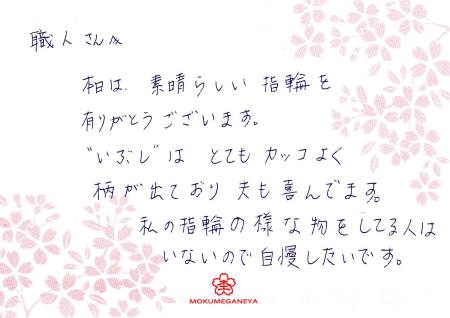 職人さんへ
本日は、素晴らしい指輪を
有りがとうございます。
"いぶし"は とてもカッコよく
柄が出ており 夫も喜んでます。
私の指輪の様な物をしてる人は
いないので自慢したいです。
MOKUMEGANEYA